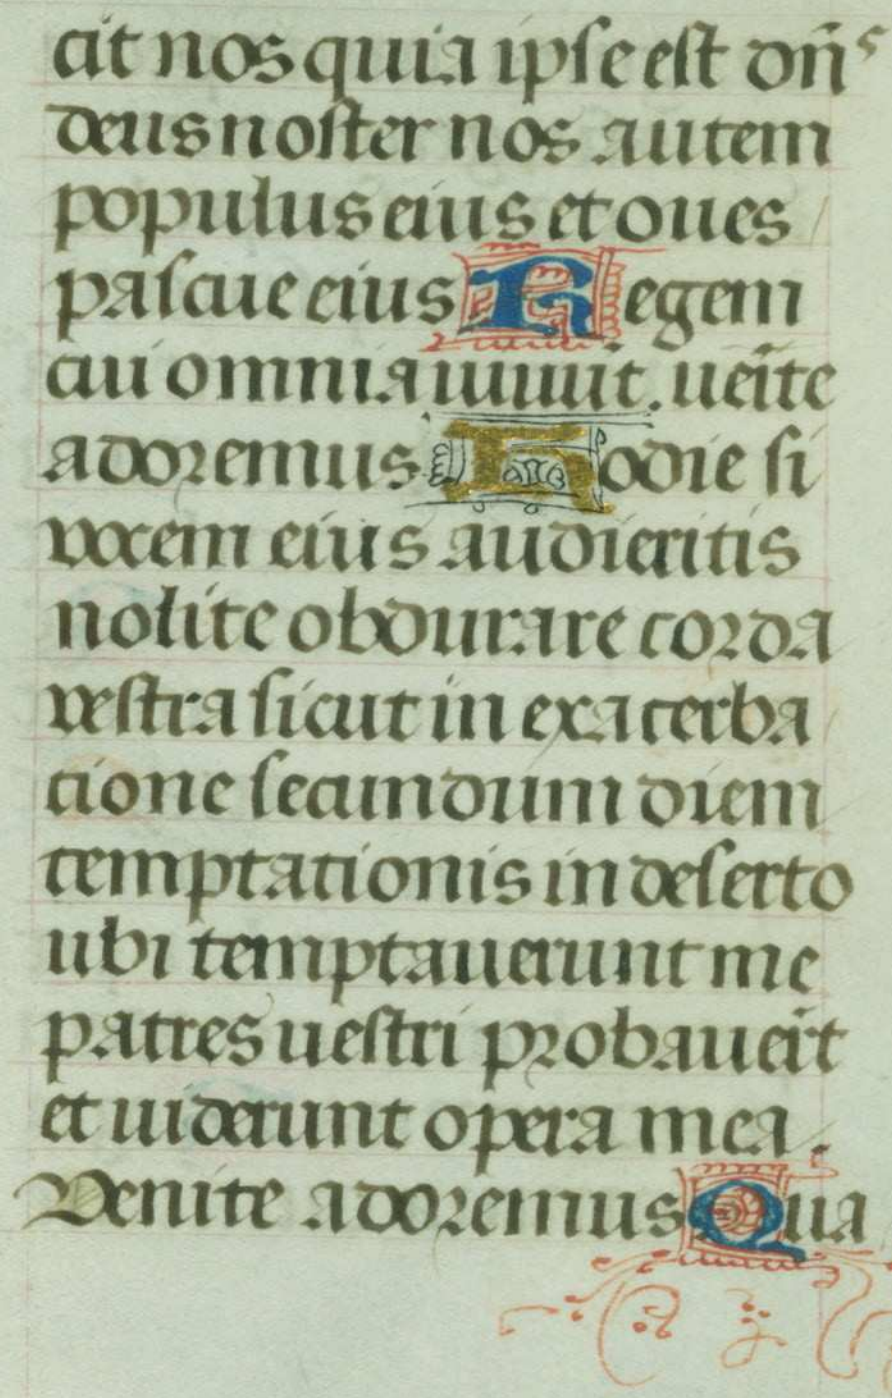 cit nos quia ipse est dn̄s
deus noster nos autem
populus eius et oues
pascue eius Regem
cui omnia uiuut. ueīte
adoremus Hodie si
vocem eius audieritis
nolite obdurare corda
vestra sicut in exacerba
cione secundum diem
temptationis in deserto
ubi temptauerunt me
patres uestri probauer̄t
et uiderunt opera mea.
Venite adoremus Qua